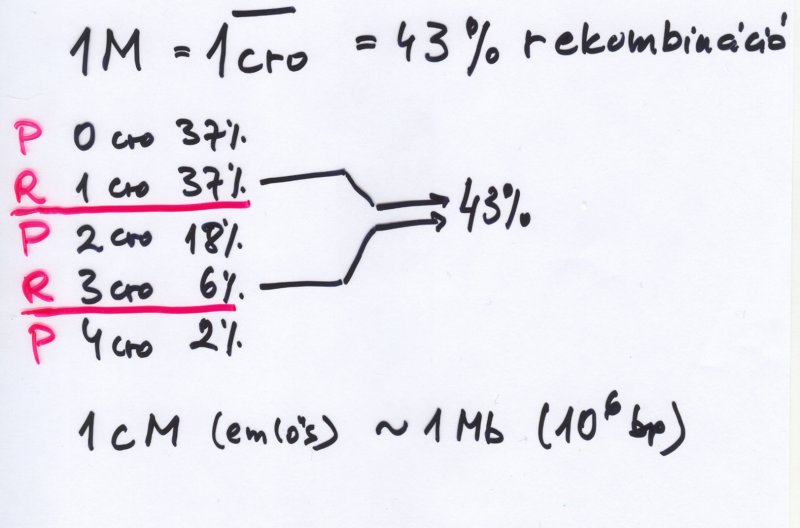 1M = 1cro = 43% rekombináció
P 0 cro 37%
R 1 cro 37%
43%
P 2 cro 18%
R 3 cro 6%
P 4 cro 2%
1 cM (emlős) ~ 1 Mb (10⁶ bp)